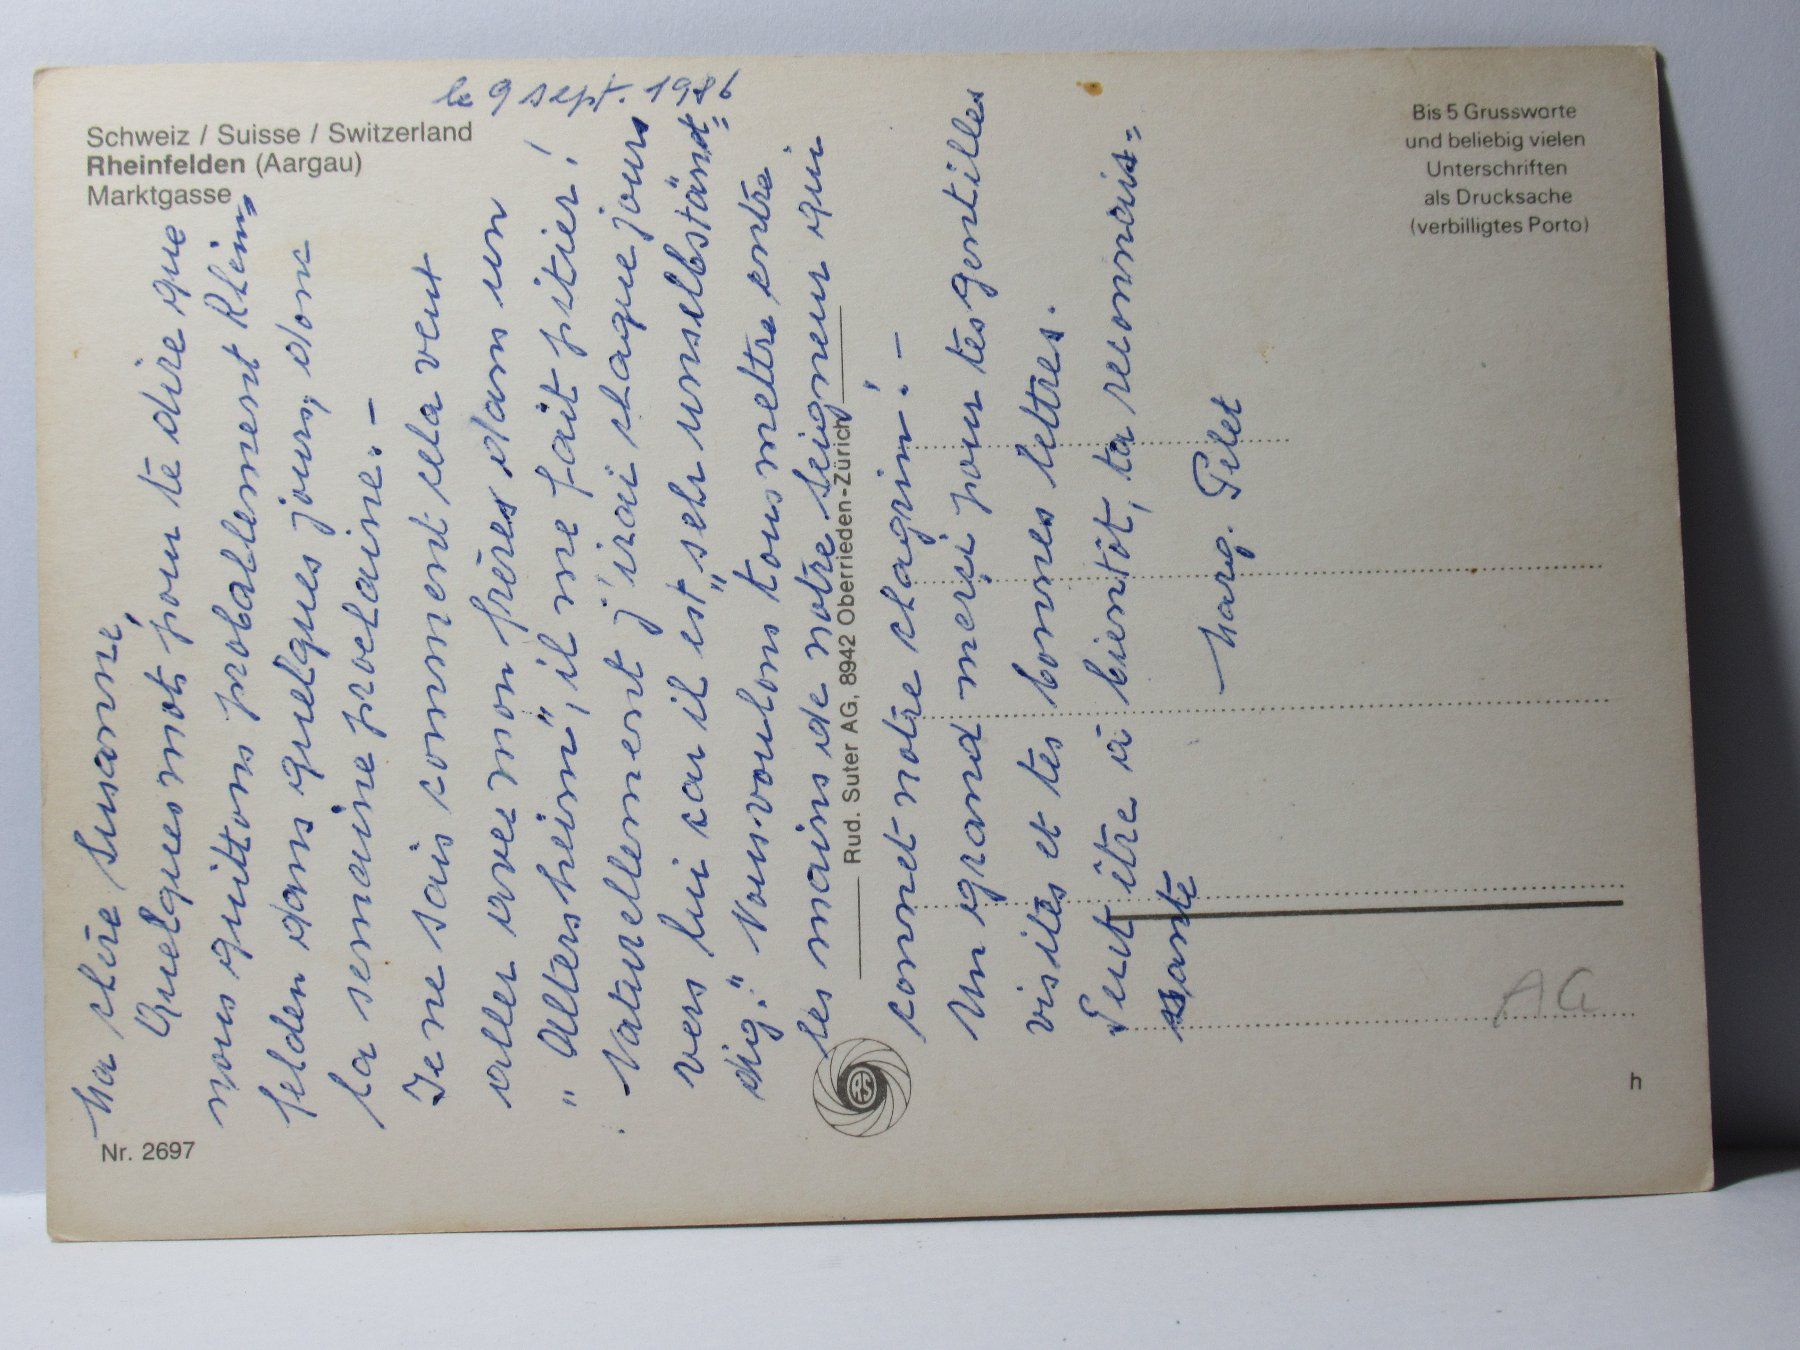 Schweiz / Suisse / Switzerland
Rheinfelden (Aargau)
Marktgasse
le 9 sept. 1986
Ma chère Susanne,
Quelques mots pour te dire que
nous quittons probablement Rhein=
felden dans quelques jours, donc
la semaine prochaine. –
Je ne sais comment cela veut
aller avec mon frères dans un
"Altersheim", il me fait pitier!
Naturellement j'irai chaque jours
vers lui car il est "sehr unselbständ=
dig." Nous voulons tous mettre entre
les mains de notre Seigneur qui
connet notre chagrin! –
Un grand merçi pour tes gentilles
visites et tes bonnes lettres.
Peut être à bientôt, ta reconnais=
sante
Marg. Pilet
Nr. 2697
Rud. Suter AG, 8942 Oberrieden-Zürich
RS
Bis 5 Grussworte
und beliebig vielen
Unterschriften
als Drucksache
(verbilligtes Porto)
AG
h